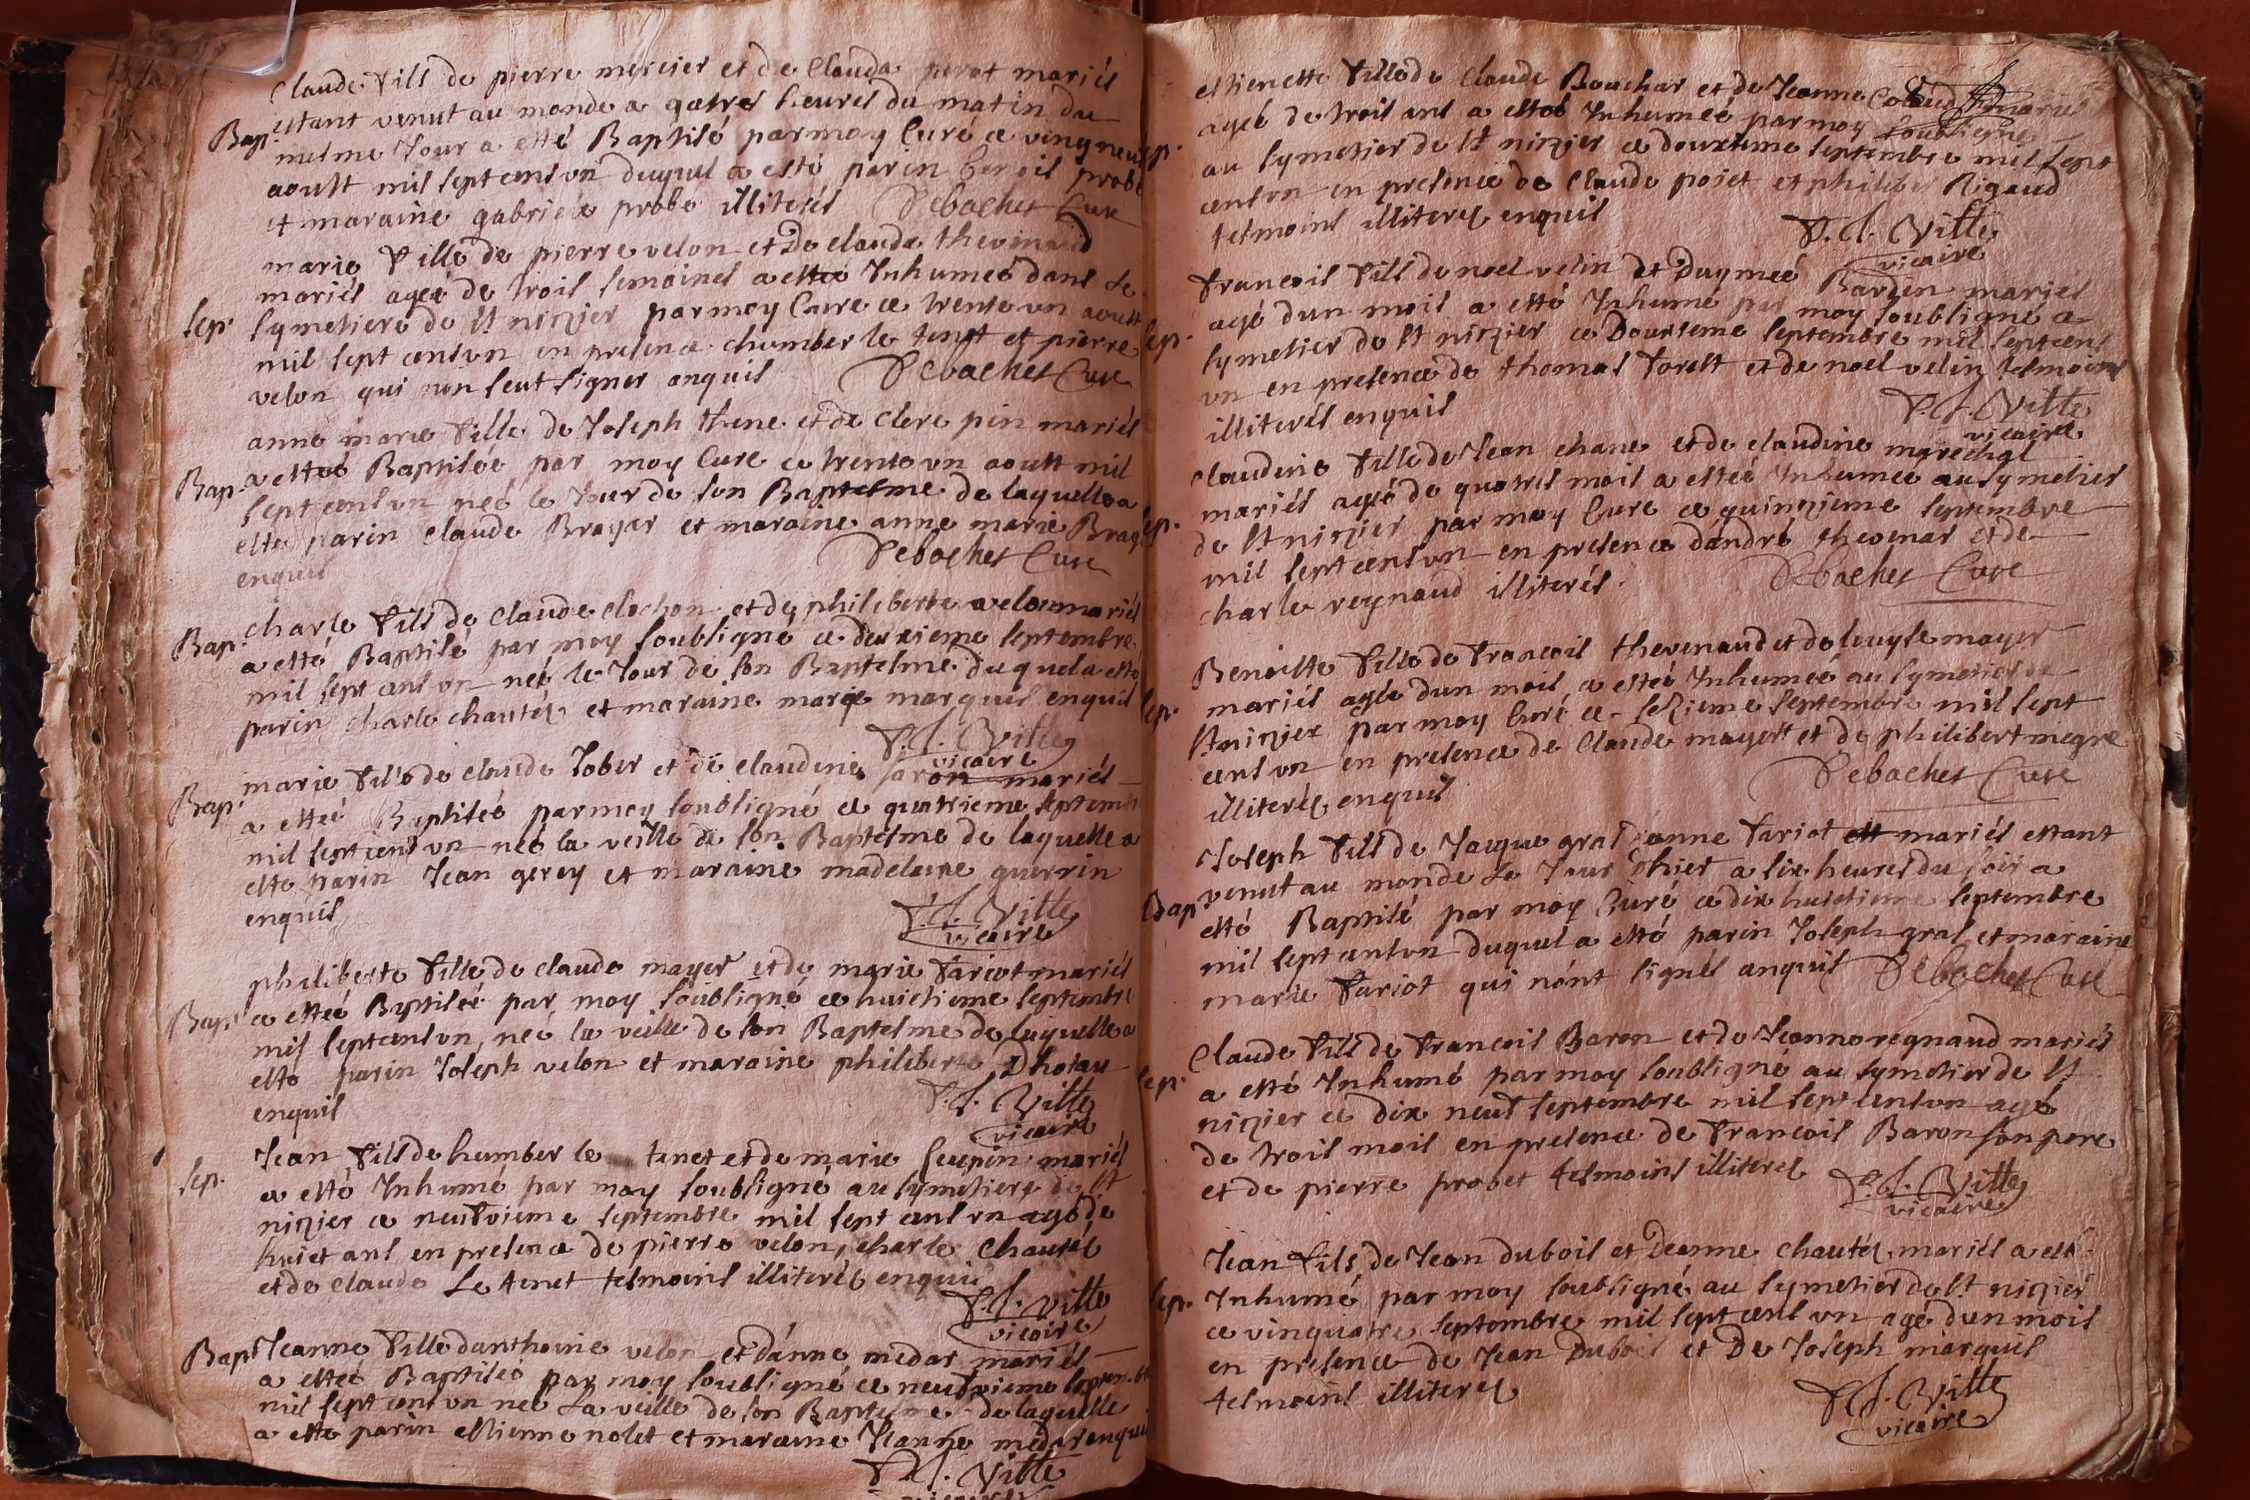 Claude fils de pierre mercier et de Clauda perot mariés
estant venut au monde a quatres heures du matin du
Bap. mesme Jour a etté Baptisé par moy Curé ce vingneuf
aoust mil sept cens un duquel a esté parin benoit probe
et maraine gabriele probe illiterés Debaches Curé
marie fille de pierre velon et De clauda thevinaud
mariés agée de trois semaines a ettée Inhumeé dans le
sep. symetiere de st nizier par moy Cure ce trente un aoust
mil sept cens un en presence chumber le tinet et pierre
velon qui non seut signer enquis Debaches Cure
anne marie fille de Joseph thene et de clere pin mariés
Bap. a etteé Baptisée par moy Cure ce trente un aoutt mil
sept cens un neé le Jour de son Baptesme de laquelle a
este parin claude Brayer et maraine anne marie Bray
enquis Debaches Cure
charle fils de claude clochon et de philiberte velon mariés
Bap. a etté Baptisé par moy soubsigné ce deuxieme septembre
mil sept cens un neé le Jour de son Baptesme duquel a esté
parin charle chautés et maraine marie marquis enquis
P. J. Ville
vicaire
marie fille de claude Jober et de claudine saron mariés
Bap. a etteé Baptiseé par moy soubsigné ce quatrieme septemb
mil sept cens un neé la veille de son Baptesme de laquelle a
este parin Jean gerey et maraine madeleine guerrin
enquis
P. J. Ville
vicaire
philiberte fille de claude mayer et de marie fariot mariés
Bap. a etteé Baptiseé par moy soubsigné ce huictieme septembre
mil sept cens un, neé la veille de son Baptesme de laquelle a
este parin Joseph velon et maraine philiberte Dhotau
enquis
P. J. Ville
vicaire
Jean fils de humber le tinet et de marie seupin mariés
sep. a etté Inhumé par moy soubsigné au symetiere de st
nizier ce neufvieme septembre mil sept cens un agé de
huict ans en presence de pierre velon, charle chautés
et de claude Le tinet tesmoins illiterés enquis
P. J. Ville
vicaire
Bap. Jeanne fille danthoine velon et dánne medar mariés
a etteé Baptiseé par moy soubsigné ce neufvieme septemb
mil sept cens un neé La veille de son Baptesme de laquelle
a este parin estienne nolet et maraine Jeanne medar enquis
P. J. Ville
estienette fille de claude Bouchar et de Jeanne mariés
ageé de trois ans a etteé Inhumeé par moy soubsigné
sep. au symetier de st nizier ce deuxieme septembre mil sept
cens un en presence de claude pojet et philiber Rigaud
tesmoins illiteres enquis
P. J. Ville
vicaire
francois fils de noel velin et Daymeé Bardin mariés
agé dun mois a etté Inhumé par moy soubsigné a
sep. symetier de st nizier ce Douzieme septembre mil sept cens
un en presence de thomas forest et de noel velin tesmoins
illiterés enquis
P. J. Ville
vicaire
claudine fille de Jean chane et de claudine marechal
mariés ageé de quatres mois a etteé Inhumeé au symetier
sep. de st nizier par moy Cure ce quinzieme septembre
mil sept cens un en presence dándré thevenas et de
charle reynaud illiterés. Debaches Cure
Benoitte fille de francois thevenaud et de louyse mayer
mariés ageé dun mois a etteé Inhumeé au symetier de
sep. st nizier par moy Curé ce sezieme septembre mil sept
cens un en presence de claude mayer et de philibert megre
illiterés enquis Debaches Cure
Joseph fils de Jacque gras danne fariot mariés estant
venut au monde Le Jour dhier a six heures du soir a
Bap. etté Baptisé par moy Curé ce dix huictieme septembre
mil sept cens un duquel a etté parin Joseph gras et maraine
marie fariot qui nónt signés enquis Debaches Cure
Claude fils de francois Baron et de Jeanne regnaud mariés
sep. a etté Inhumé par moy soubsigné au symetier de st
nizier ce dix neuf septembre mil sept cens un agé
de trois mois en presence de francois Baron son pere
et de pierre probet tesmoins illiteres
P. J. Ville
vicaire
Jean fils de Jean dubois et Deanne chautés mariés a etté
sep. Inhumé par moy soubsigné au symetier de st nizier
ce vinquatre septembre mil sept cens un agé dun mois
en presence de Jean Dubois et De Joseph marquis
tesmoins illiterés
P. J. Ville
vicaire